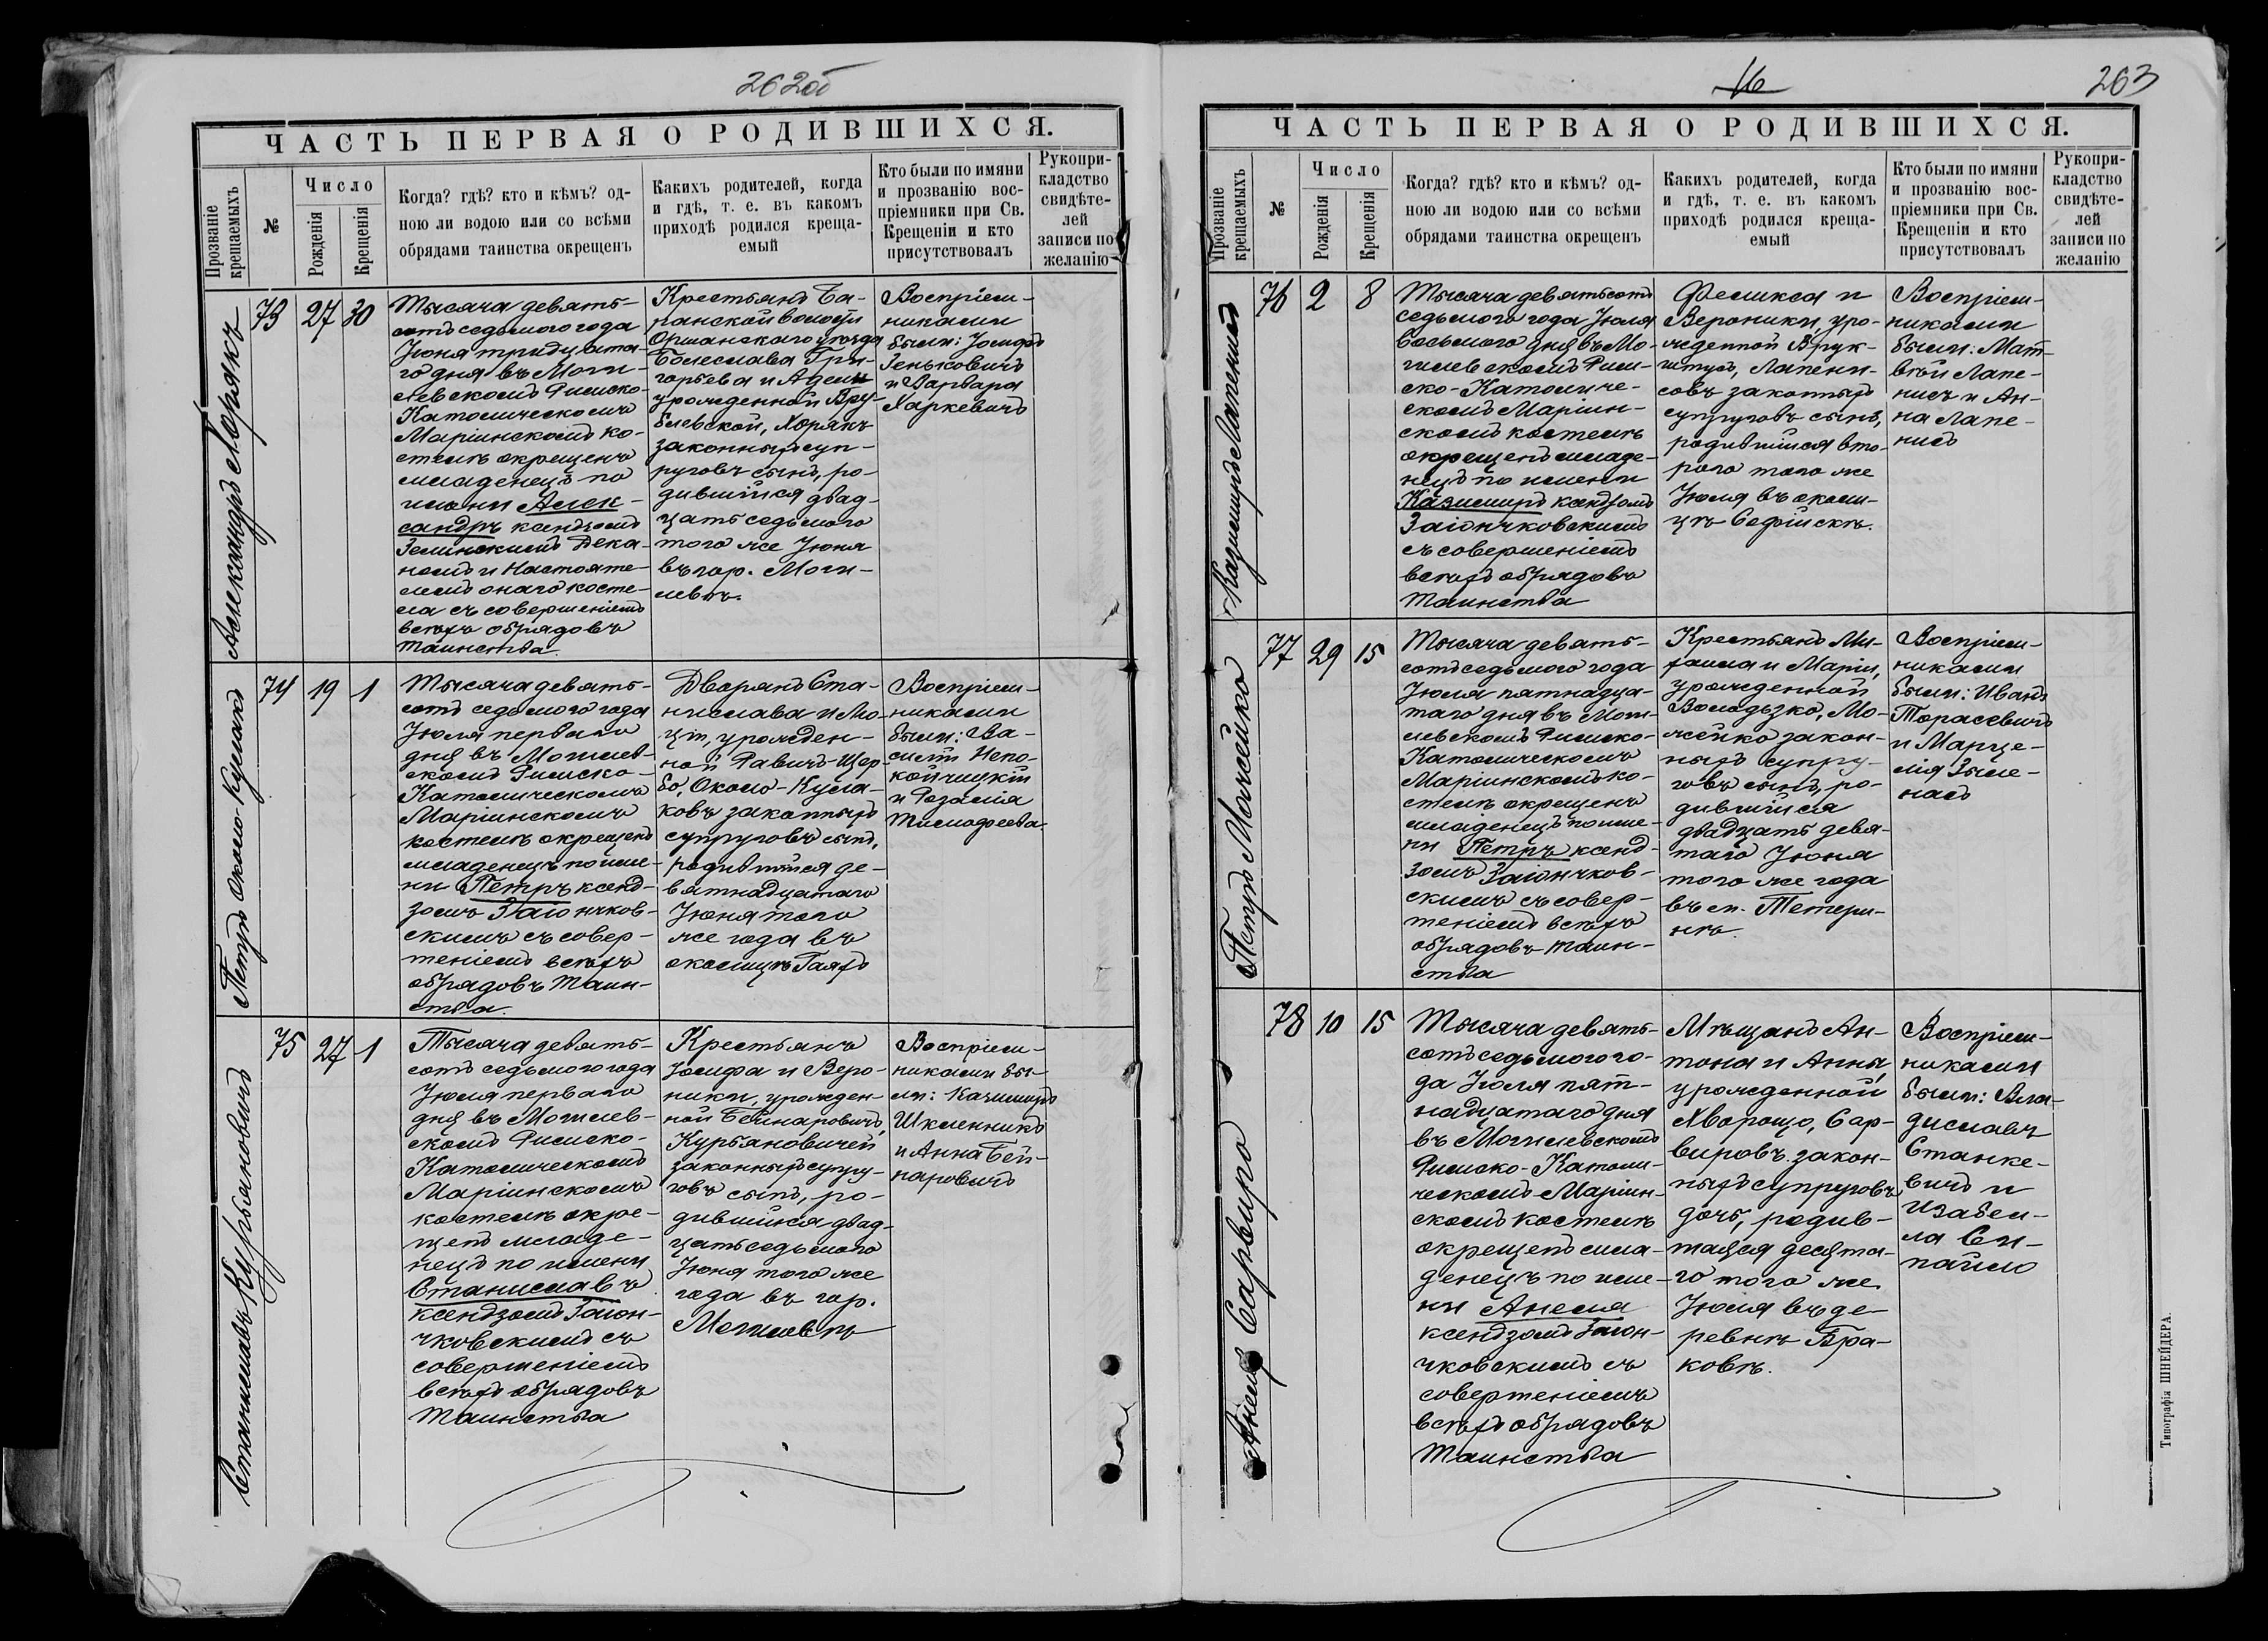 262об
ЧАСТЬ ПЕРВАЯ О РОДИВШИХСЯ.
Прозваніе крещаемыхъ
№
Число
Рожденія
Крещенія
Когда? гдѣ? кто и кѣмъ? од-
ною ли водою или со всѣми
обрядами таинства окрещенъ
Какихъ родителей, когда
и гдѣ, т. е. въ какомъ
приходѣ родился креща-
емый
Кто были по имяни
и прозванію вос-
пріемники при Св.
Крещеніи и кто
присутствовалъ
Рукопри-
кладство
свидѣте-
лей
записи по
желанію
Александръ
73
27
30
Тысяча девять-
сотъ седьмого года
Іюня тридцата-
го дня въ Моги-
левскомъ Римско-
Католическомъ
Маріинскомъ ко-
стелѣ окрещенъ
младенецъ по
имени Алек-
сандръ ксендзомъ
Зелинскимъ Дека-
номъ и Настояте-
лемъ онаго косте-
ла съ совершеніемъ
всѣхъ обрядовъ
таинства.
Крестьянъ Ба-
ранской волости
Оршанскаго уѣзда
Болеслава Гри-
горьева и Адели
урожденной Вру-
блевской, Хорякъ
законныхъ суп-
руговъ сынъ, ро-
дившійся двад-
цать седьмого
того же Іюня
въ гор. Моги-
левѣ.
Воспріем-
никами
были: Іосифъ
Зеньковичъ
и Варвара
Харкевичъ
Петръ Около-Кулакъ
74
19
1
Тысяча девять-
сотъ седьмого года
Іюля перваго
дня въ Могилев-
скомъ Римско-
Католическомъ
Маріинскомъ
костелѣ окрещенъ
младенецъ по име-
ни Петръ ксенд-
зомъ Заіончков-
скимъ съ совер-
шеніемъ всѣхъ
обрядовъ Таин-
ства.
Дворянъ Ста-
нислава и Мо-
урожден-
ной Равичъ-Щер-
бо, Около-Кула-
ковъ законныхъ
супруговъ сынъ,
родившійся де-
вятнадцатаго
Іюня того
же года въ
околицѣ Гаяхъ
Воспріем-
никами
были: Ва-
силій Непо-
койчицкій
и Розалія
Тимофеева.
Станиславъ Курьяновичъ
75
27
1
Тысяча девять-
сотъ седьмого года
Іюля перваго
дня въ Могилев-
скомъ Римско-
Католическомъ
Маріинскомъ
костелѣ окре-
щенъ младе-
нецъ по имени
Станиславъ
ксендзомъ Заіон-
чковскимъ съ
совершеніемъ
всѣхъ обрядовъ
Таинства
Крестьянъ
Іосифа и Веро-
ники, урожден-
ной Бейнаровичъ,
Курьяновичей
законныхъ супру-
говъ сынъ, ро-
дившійся двад-
цать седьмого
Іюня того же
года въ гор.
Могилевѣ
Воспріем-
никами бы-
ли: Казимиръ
Шкленникъ
и Анна Бей-
наровичъ
16
263
ЧАСТЬ ПЕРВАЯ О РОДИВШИХСЯ.
Прозваніе крещаемыхъ
№
Число
Рожденія
Крещенія
Когда? гдѣ? кто и кѣмъ? од-
ною ли водою или со всѣми
обрядами таинства окрещенъ
Какихъ родителей, когда
и гдѣ, т. е. въ какомъ
приходѣ родился креща-
емый
Кто были по имяни
и прозванію вос-
пріемники при Св.
Крещеніи и кто
присутствовалъ
Рукопри-
кладство
свидѣте-
лей
записи по
желанію
Казимиръ Лапенисъ
76
2
8
Тысяча девятьсотъ
седьмого года Іюля
восьмого дня въ Мо-
гилевскомъ Рим-
ско-Католиче-
скомъ Маріин-
скомъ костелѣ
окрещенъ младе-
нецъ по имени
Казимиръ ксендзомъ
Заіончковскимъ
съ совершеніемъ
всѣхъ обрядовъ
Таинства
Феликса и
Вероники, уро-
жденной Врук-
Лапени-
совъ законныхъ
супруговъ сынъ,
родившійся вто-
рого того же
Іюля въ околи-
цѣ Софійскѣ.
Воспріем-
никами
были: Мат-
вѣй Лапе-
нисъ и Ан-
на Лапе-
нисъ
Петръ Можейко
77
29
15
Тысяча девять-
сотъ седьмого года
Іюля пятнадца-
таго дня въ Моги-
левскомъ Римско-
Католическомъ
Маріинскомъ ко-
стелѣ окрещенъ
младенецъ по име-
ни Петръ ксенд-
зомъ Заіончков-
скимъ съ совер-
шеніемъ всѣхъ
обрядовъ таин-
ства
Крестьянъ Ми-
хаила и Маріи,
урожденной
Володзко, Мо-
жейко закон-
ныхъ супру-
говъ сынъ, ро-
дившійся
двадцать девя-
таго Іюня
того же года
въ им. Тетери-
нѣ.
Воспріем-
никами
были: Иванъ
Тарасевичъ
и Марце-
лія Зыме-
насъ
Анеля Сарвиро
78
10
15
Тысяча девять-
сотъ седьмого го-
да Іюля пят-
надцатаго дня
въ Могилевскомъ
Римско-Католи-
ческомъ Маріин-
скомъ костелѣ
окрещенъ мла-
денецъ по име-
ни Анеля
ксендзомъ Заіон-
чковскимъ съ
совершеніемъ
всѣхъ обрядовъ
Таинства
Мѣщанъ Ан-
тона и Анны,
урожденной
Хворощо, Сар-
вировъ закон-
ныхъ супруговъ
дочь, родив-
шаяся десята-
го того же
Іюля въ де-
ревнѣ Бра-
ковѣ.
Воспріем-
никами
были: Вла-
диславъ
Станке-
вичъ и
Изабел-
ла Си-
пайло
Типографія ШНЕЙДЕРА.